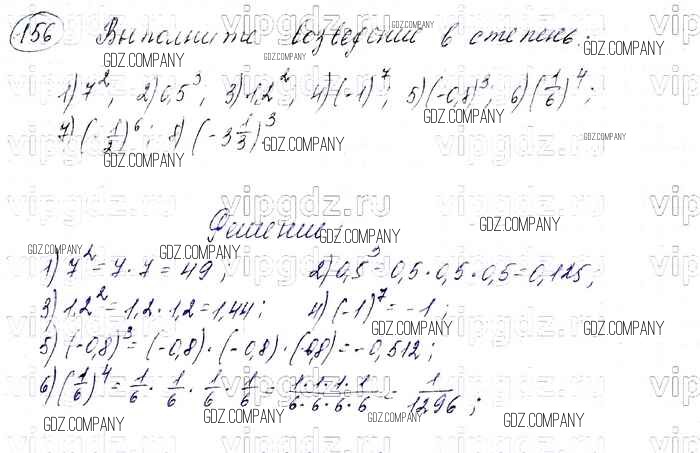 156 Выполните возведение в степень:
1) 7², 2) 0,5³, 3) 1,2²; 4) (-1)⁷; 5) (-0,8)³; 6) (1/6)⁴;
7) (-1/2)⁶; 8) (-3 1/3)³.
Решение:
1) 7² = 7 · 7 = 49; 2) 0,5³ = 0,5 · 0,5 · 0,5 = 0,125;
3) 1,2² = 1,2 · 1,2 = 1,44; 4) (-1)⁷ = -1;
5) (-0,8)³ = (-0,8) · (-0,8) · (-0,8) = -0,512;
6) (1/6)⁴ = 1/6 · 1/6 · 1/6 · 1/6 = 1·1·1·1/6·6·6·6 = 1/1296;
vipgdz.ru
GDZ.COMPANY